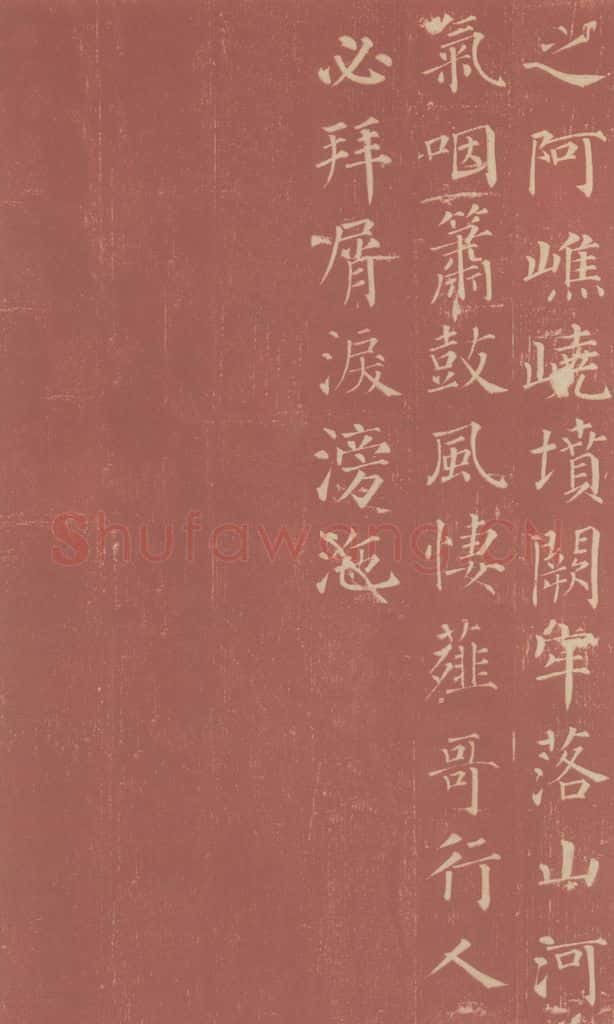 之阿嶕嶢墳闕牢落山河
氣咽簫鼓風悽薤哥行人
必拜屑淚滂沲
Shufawang.CN